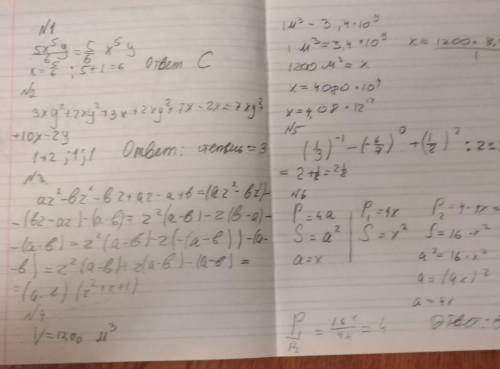 N1
5x⁵y/6 = 5/6 x⁵ y
x = 5/6 ; 5+1=6 Ответ C
N2
3xy²+7xy²+3x+2xy², 7x-2x=7xy²
+10x-2y
1+2 ; 1; 1 Ответ: степень = 3
az²-bz²-bz+az-a+b=(az²-bz²)-
-(bz-az)-(a-b)=z²(a-b)-z(b-a)-
-(a-b)=z²(a-b)-z(-(a-b))-(a-
-b)=z²(a-b)=z(a-b)-(a-b)=
N4
V=1200 м³
1м³ - 3,4·10⁹
1м³=3,4·10⁹
1200 м³=x
x=4080·10⁹
x=4,08·10¹²
N5
(1/3)⁻¹-(-6/7)⁰+(1/2)²:2=
=2+1/8=2 1/8
N6
P=4a
S=a²
a=x
P₁=4x
S=x²
P₂=4·4x=
S=16·x²
a²=16·x²
a=(4x)²
a=4x
P/P₂=16x/4x=4